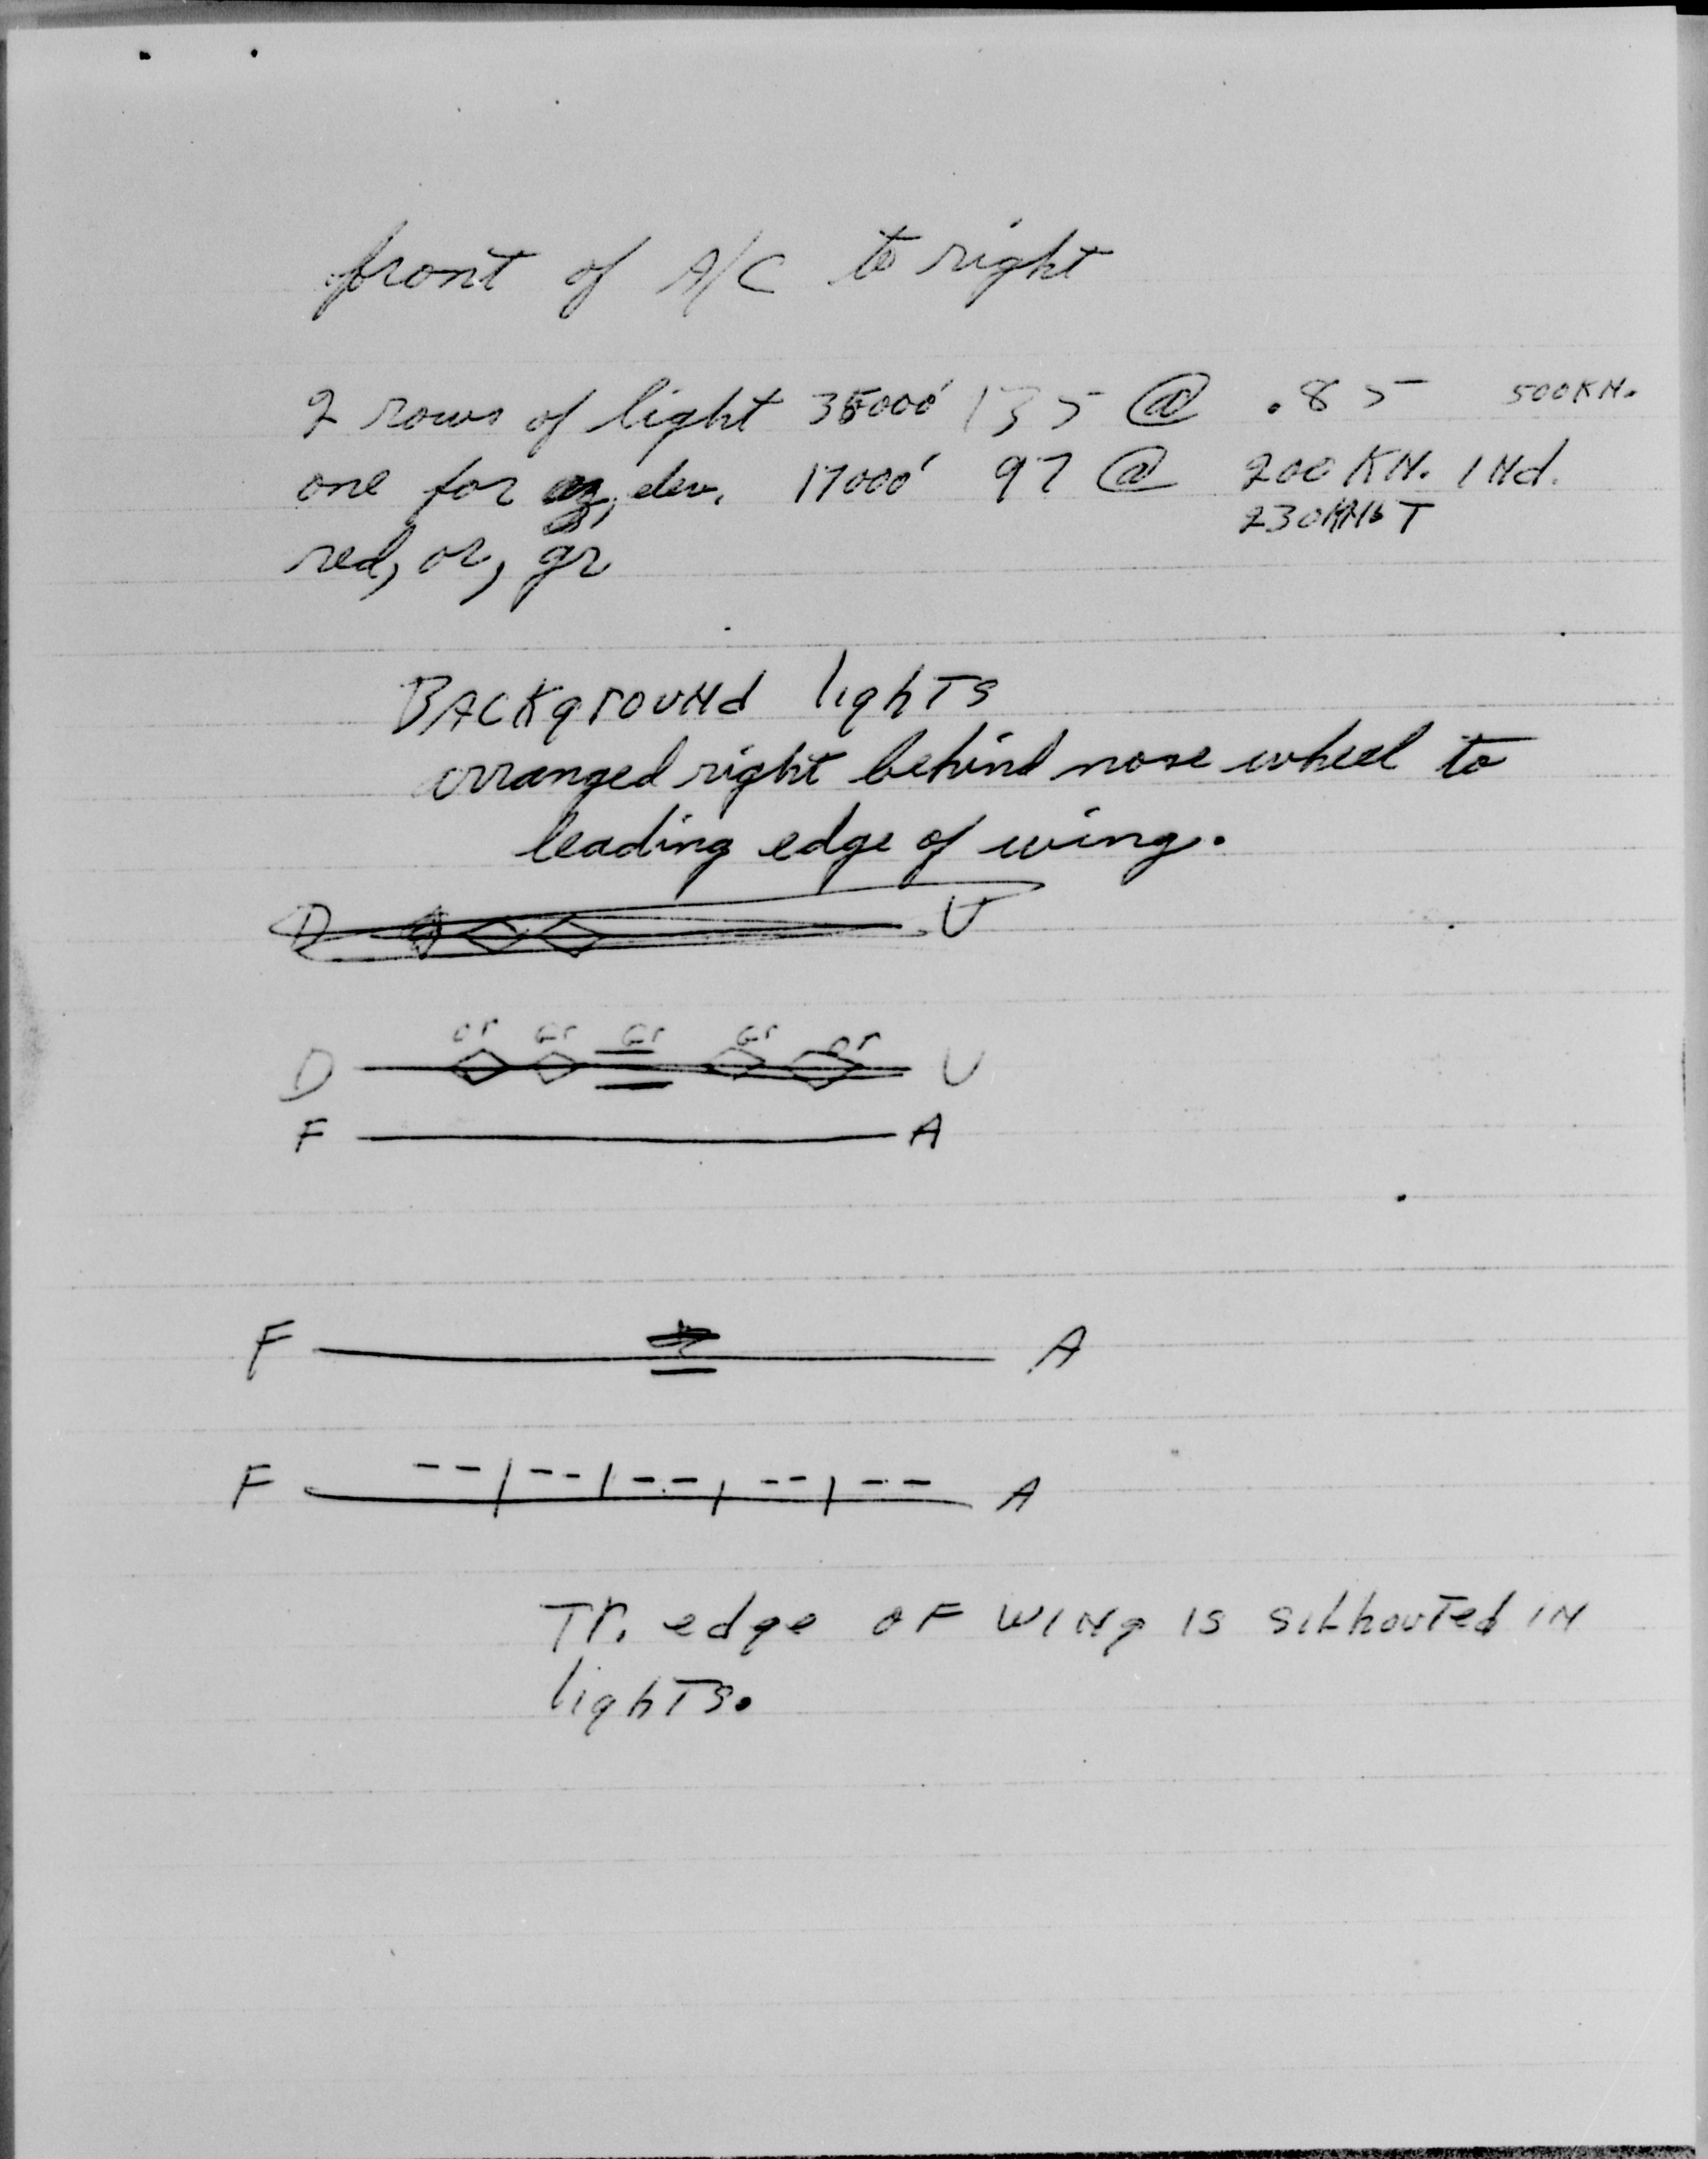 front of A/C to right
2 rows of light 35000' 135 @ .85 500KN.
one for az, elev. 17000' 97 @ 200 KN. INd.
230 T
red, or, gr
BACKgrouNd lighTs
arranged right behind nose wheel to
leading edge of wing.
D U
or Gr Gr Gr or
D U
F A
F A
F A
Tr. edge oF wiNg is siLhouTed iN
lighTs.